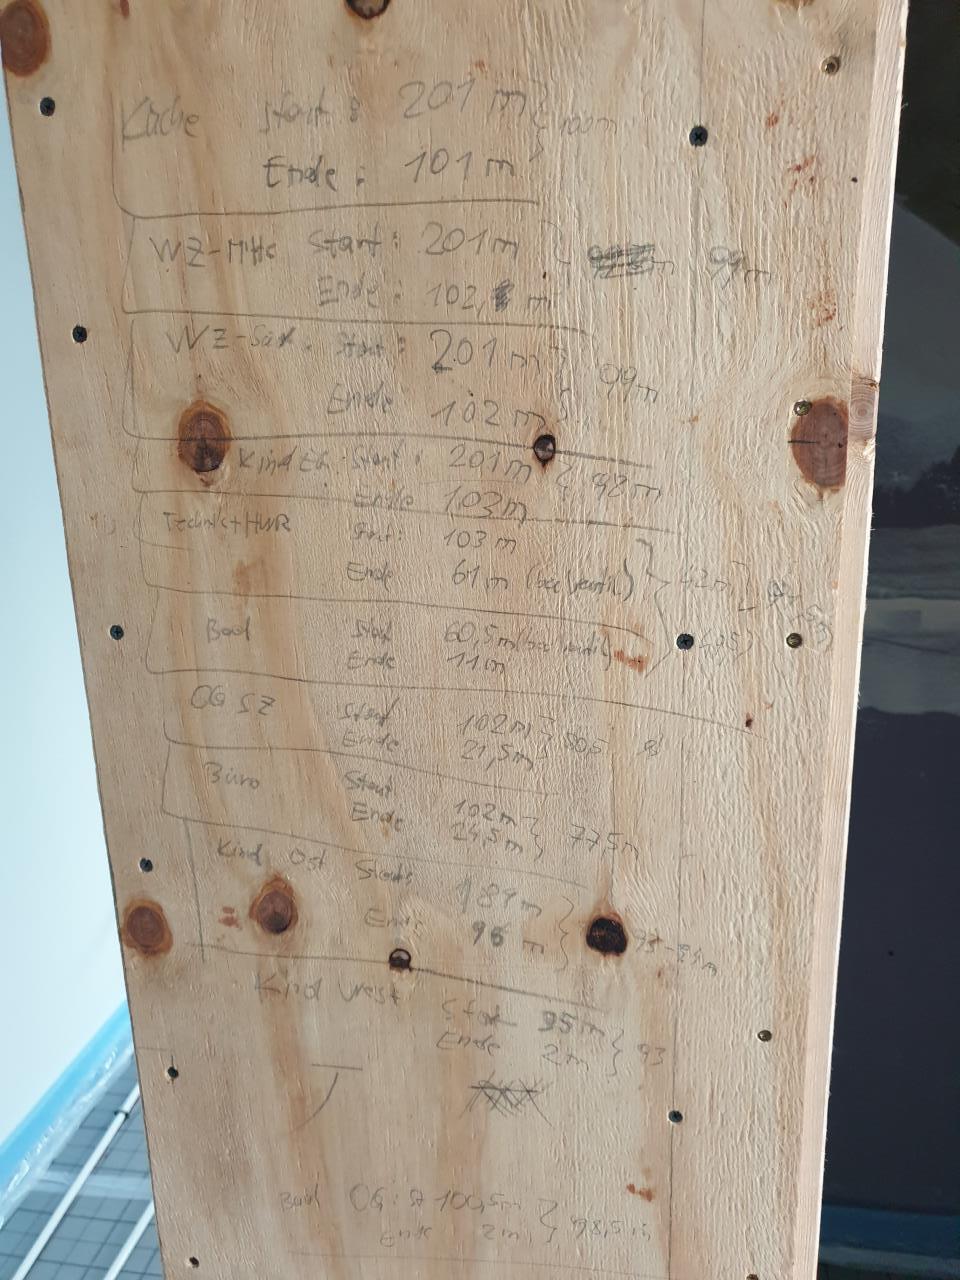 Küche Start: 201 m } 100m
Ende: 101 m
WZ-Mitte Start: 201 m } 99 m
Ende: 102, m
WZ-Süd. Start: 201 m } 99 m
Ende 102 m
Kind EG Start: 201 m } 98 m
Ende 103 m
Technik+HWR Start: 103 m
Ende 61 m } 42m
Bad Start 60,5 m
Ende 11 m
OG SZ Start 102 m } 80,5
Ende 21,5 m
Büro Start 102 m } 77,5 m
Ende 24,5 m
Kind Ost Start: 189 m
Ende: 96 m
Kind West
Start 95 m } 93
Ende 2 m
Bad OG: 100,5m } 98,5 m
Ende 2 m